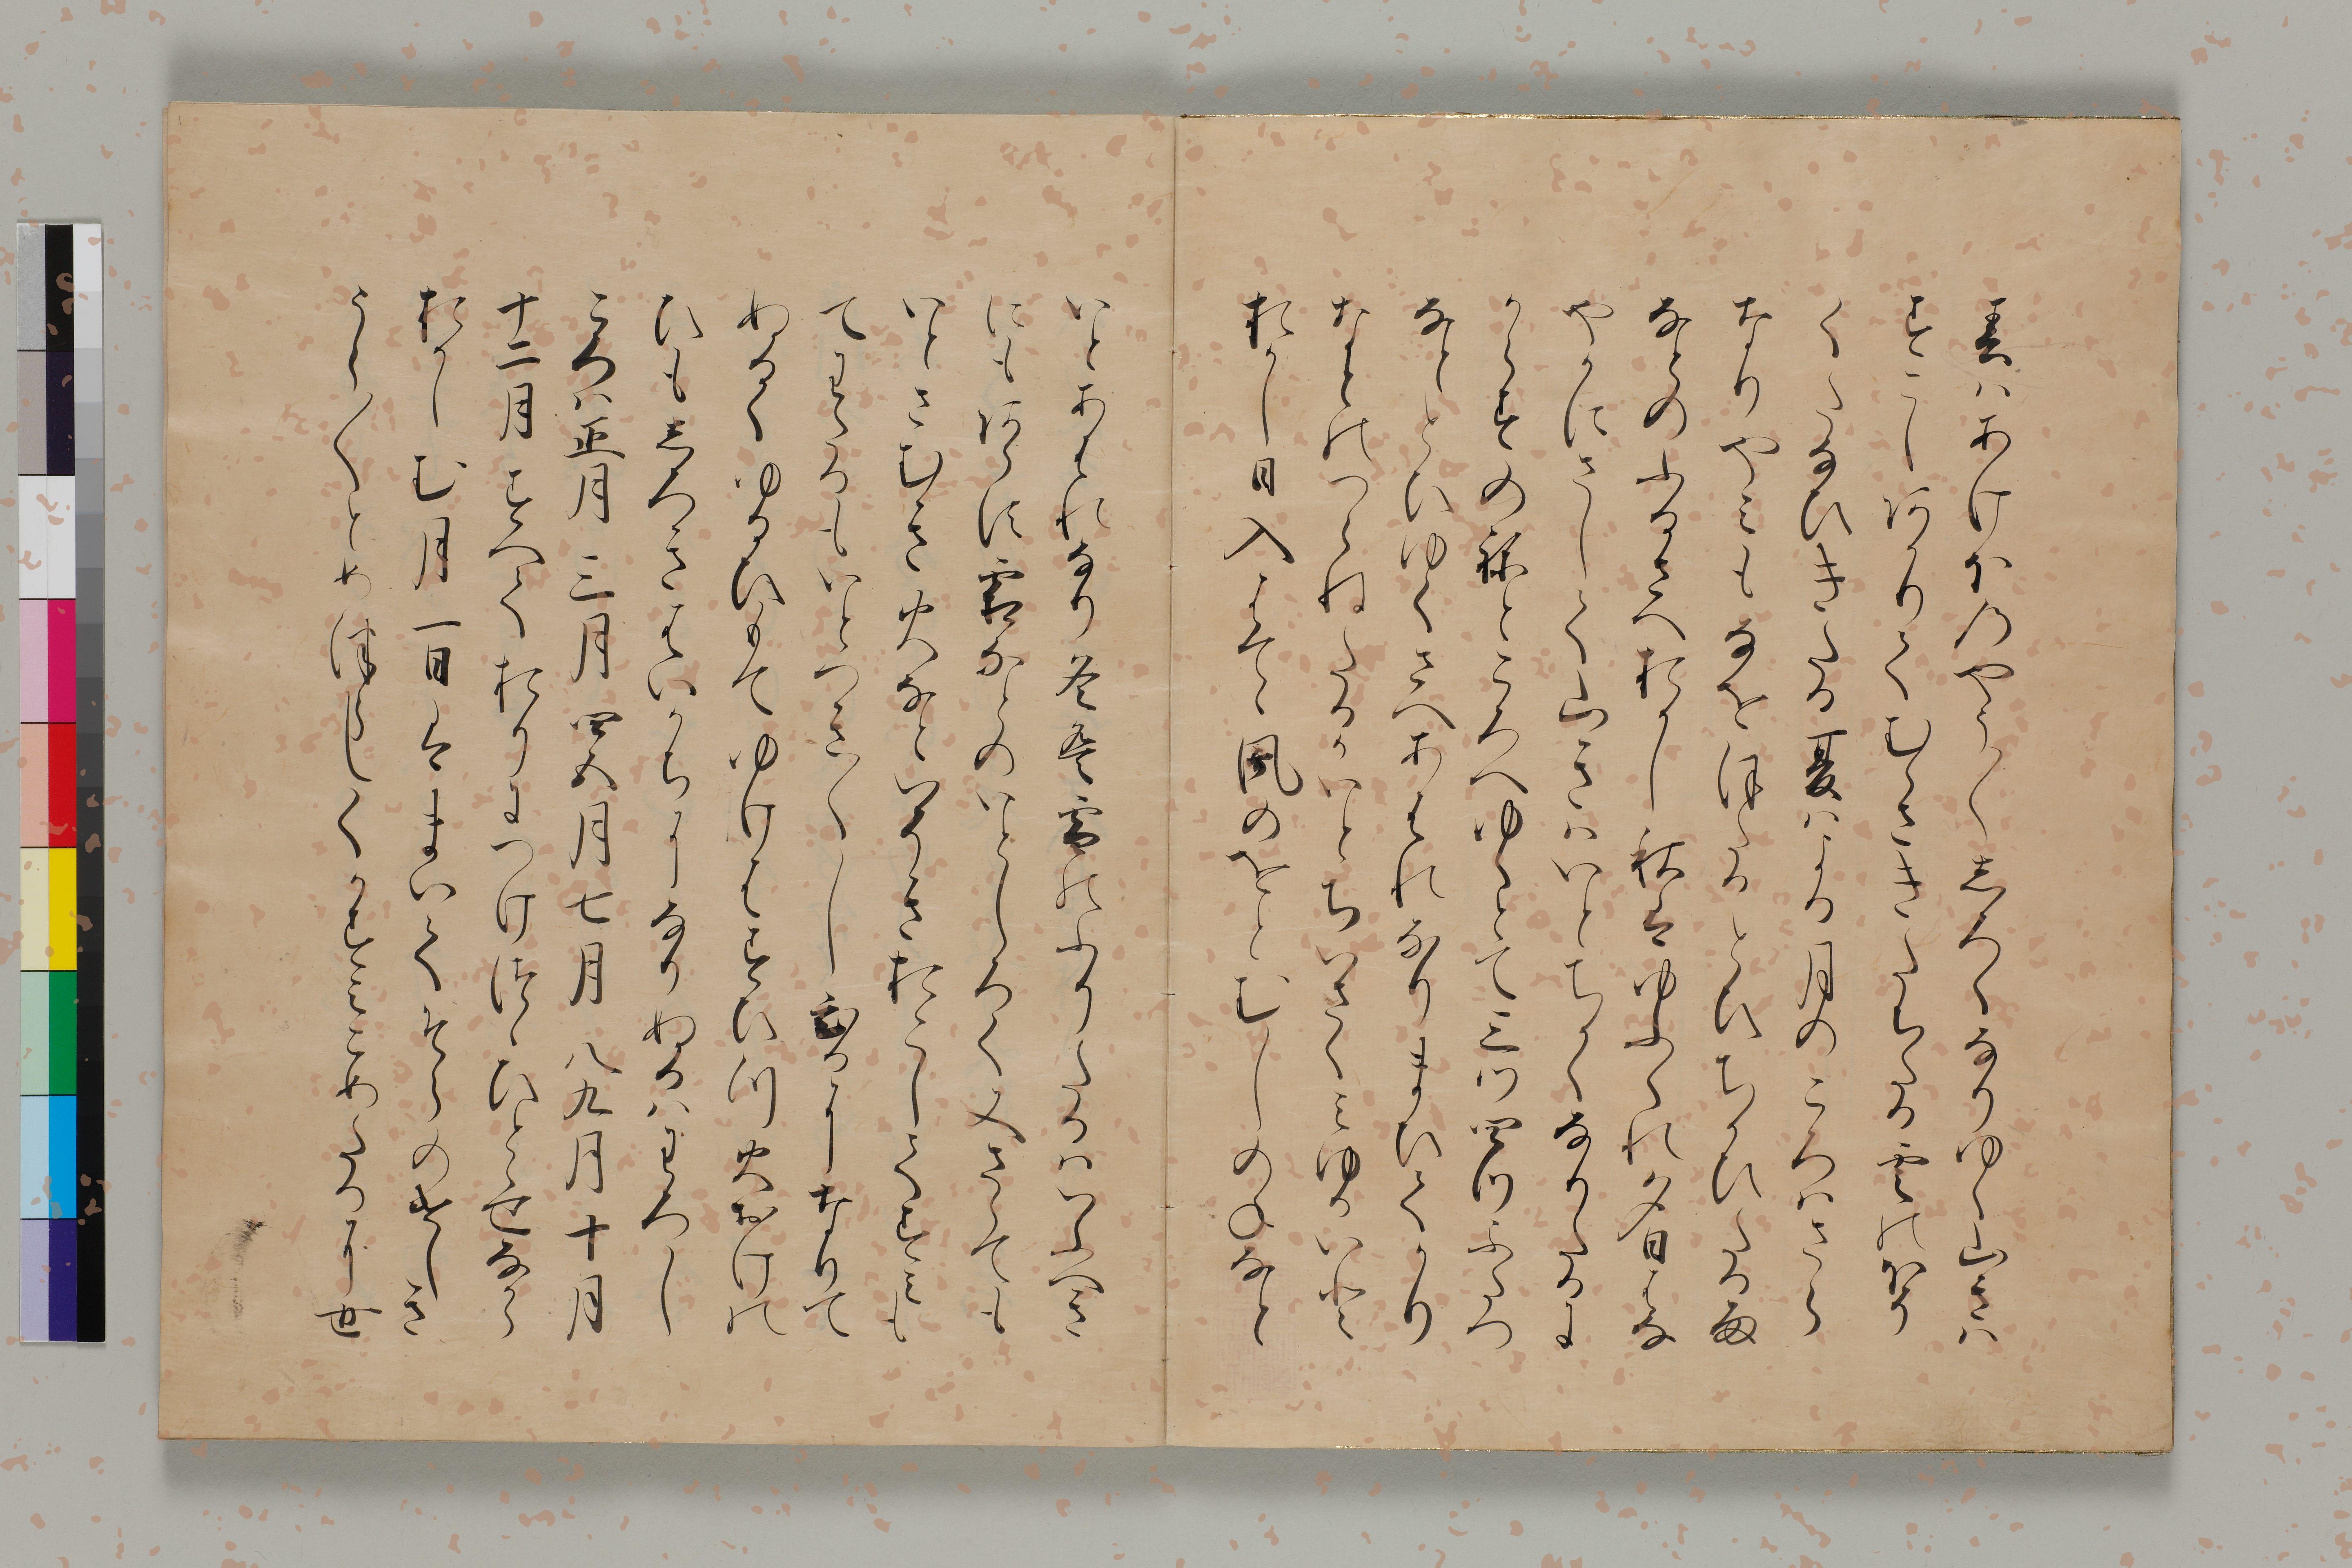 春はあけほのやう〳〵しろくなりゆく山きは
すこしあかりてむらさきたちたる雲のほそ
くたなひきたる夏はよる月のころはさら
なりやみもなをほたるとひちかひたる雨
なとのふるさへおかし秋はゆふくれ夕日はな
やかにさして山きはいとちかくなりたるに
からすのねところへゆくとて三四ふたつ
なとゝひゆくさへあはれなりまひてかり
なとのつらねたるかいとちいさくみゆるいと
おかし日入はてゝ風のをとむしのねなと
いとあはれなり冬は雪のふりたるはいふへき
にもあらす霜なとのいとしろく又さらても
いとさむき火なといそきおこしてすみも
てわたるもいとつき〳〵し昼になりて
ぬるくゆるひもてゆけはすひつ火おけの
ひもしろきはいかちになりぬるはわろし
ころは正月三月四五月七月八九月十月
十二月すへておりにつけつゝひとゝせなから
おかしむ月一日はまいてそらのけしき
うら〳〵とめつらしくかすみこめたるに世